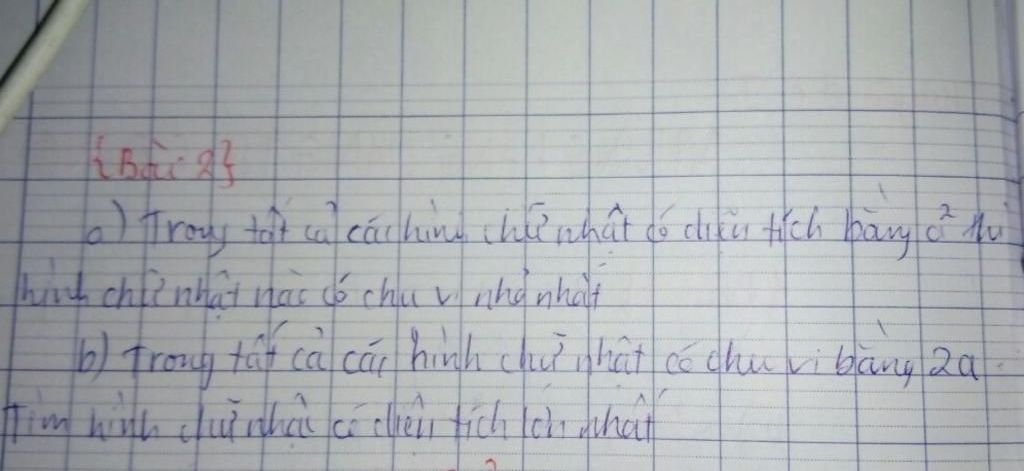 {Bài 2}
a) Trong tất cả các hình chữ nhật có diện tích bằng a² thì
hình chữ nhật nào có chu vi nhỏ nhất
b) Trong tất cả các hình chữ nhật có chu vi bằng 2a.
Tìm hình chữ nhật có diện tích lớn nhất